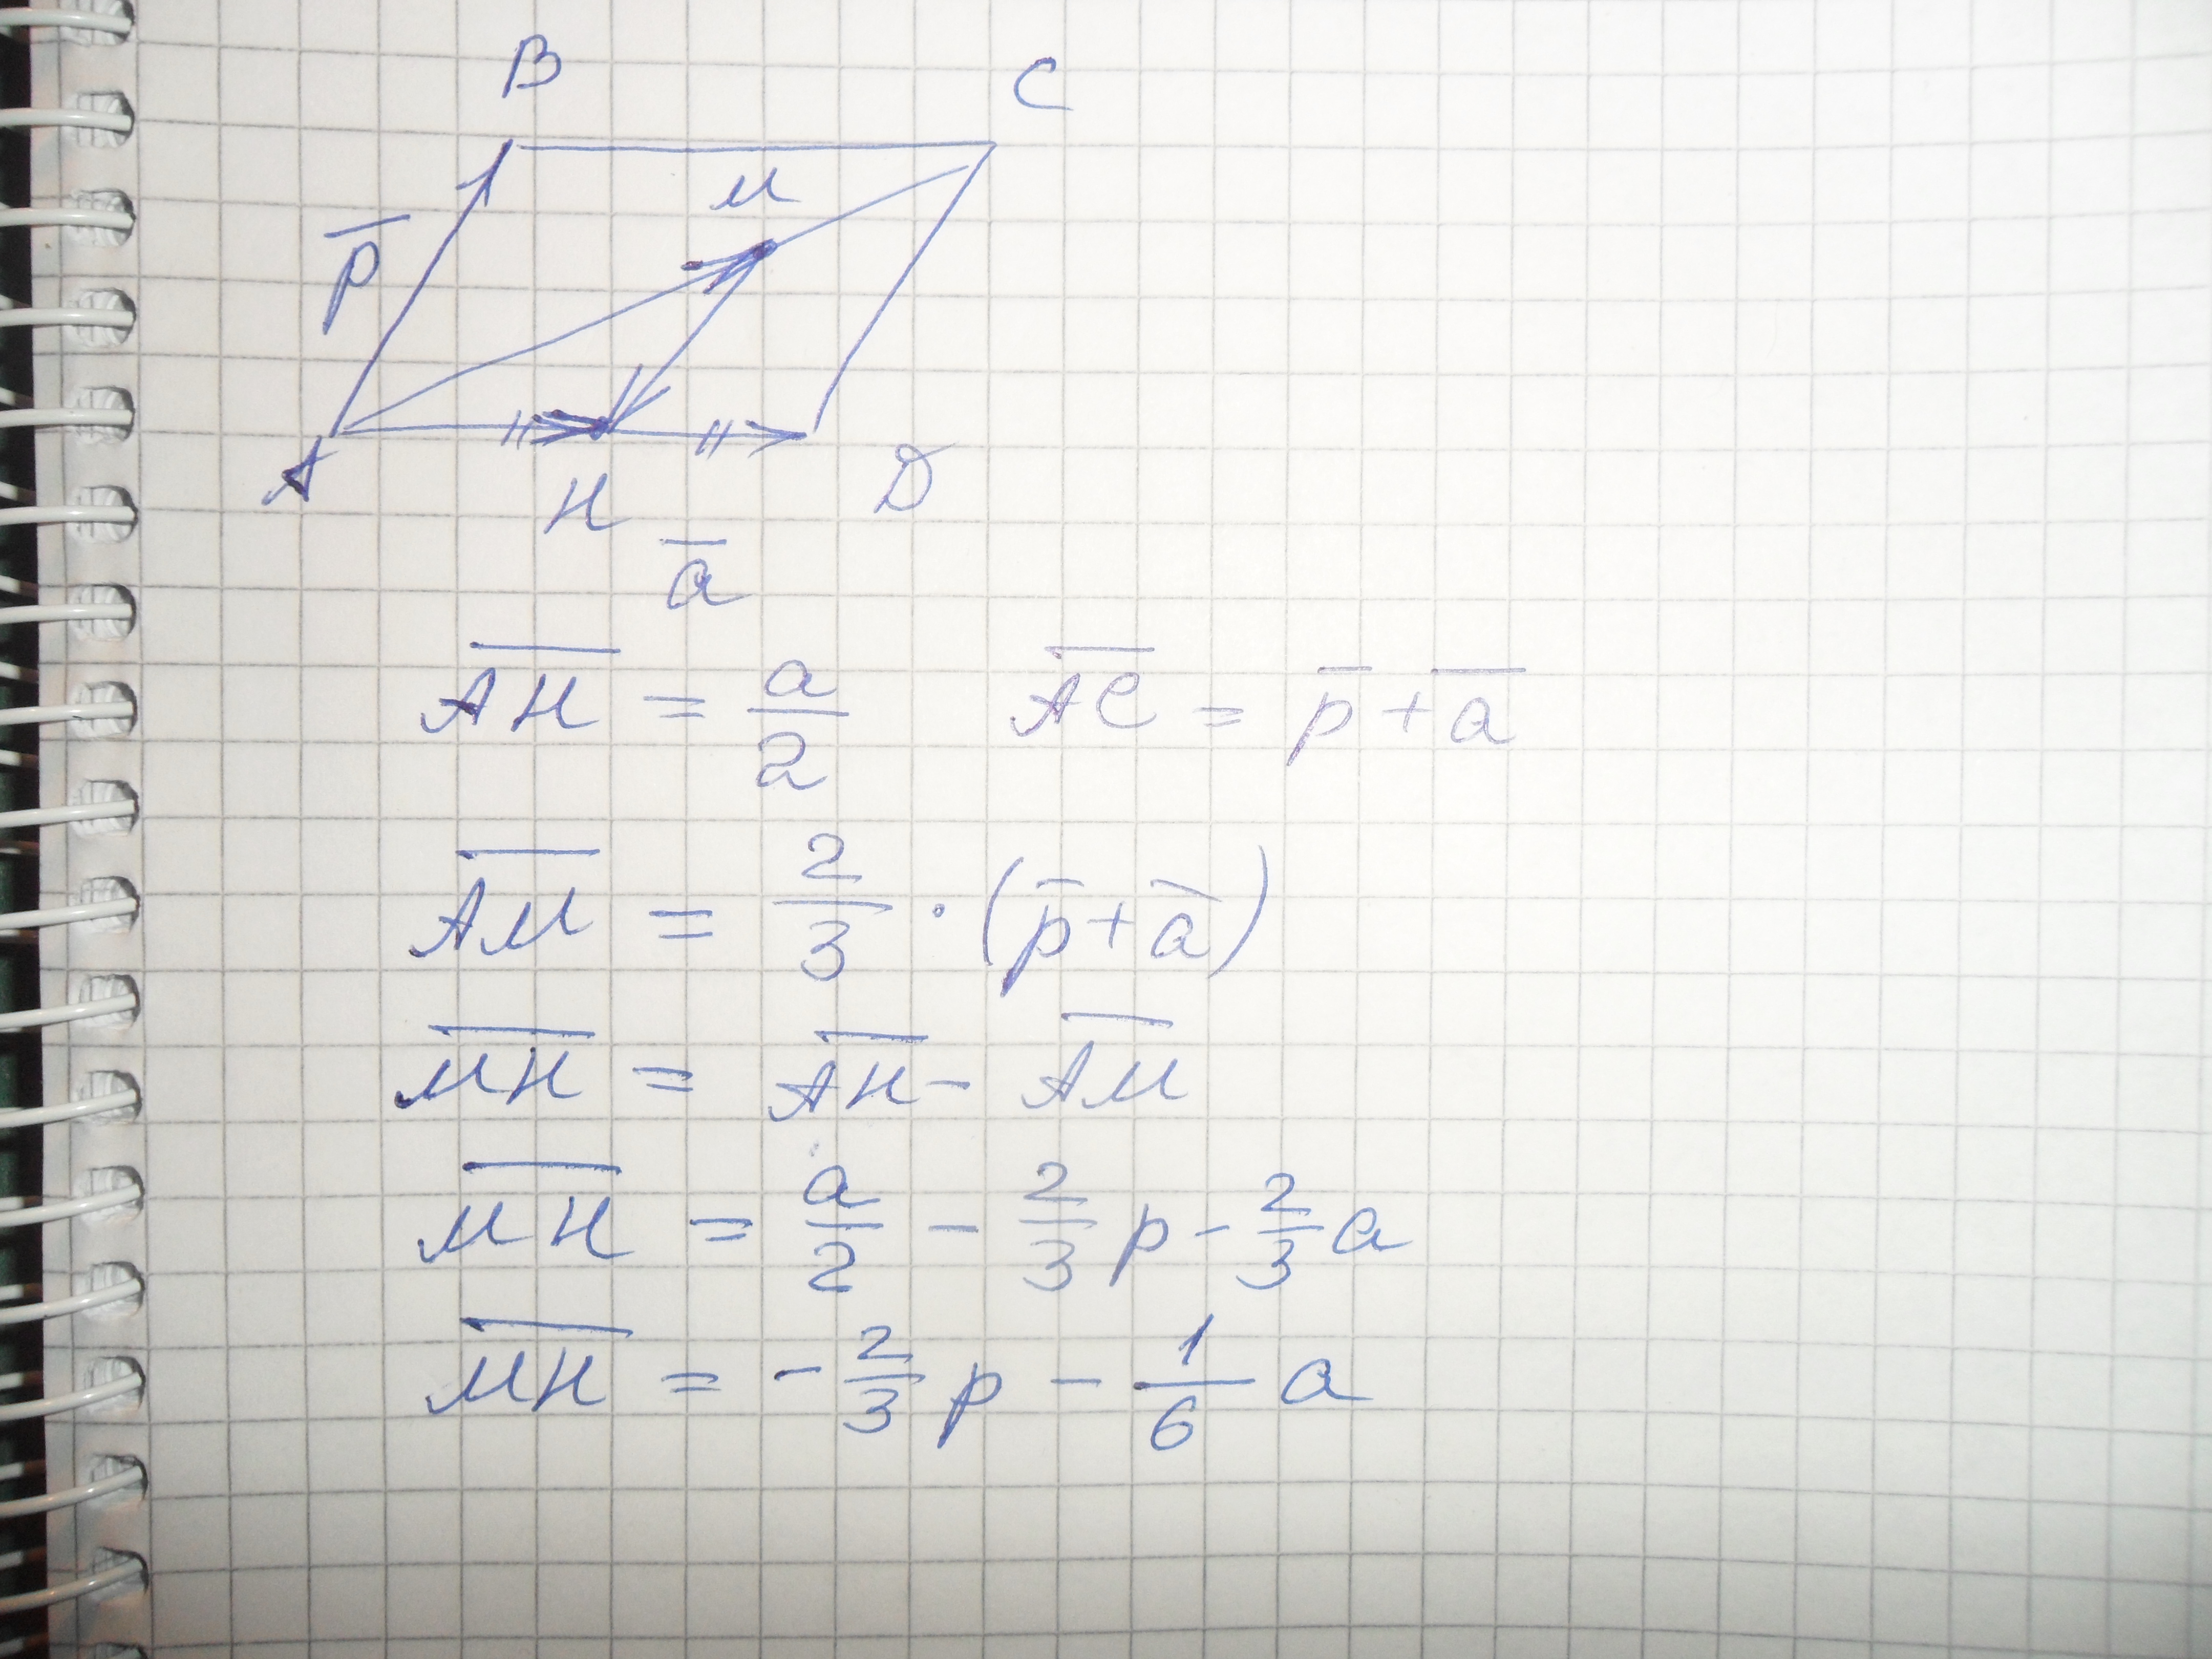 B C
p̅ м
A H D
a̅
A̅H̅ = a/2 A̅C̅ = p̅ + a̅
A̅M̅ = 2/3 · (p̅ + a̅)
M̅H̅ = A̅H̅ - A̅M̅
M̅H̅ = a/2 - 2/3 p - 2/3 a
M̅H̅ = - 2/3 p - 1/6 a